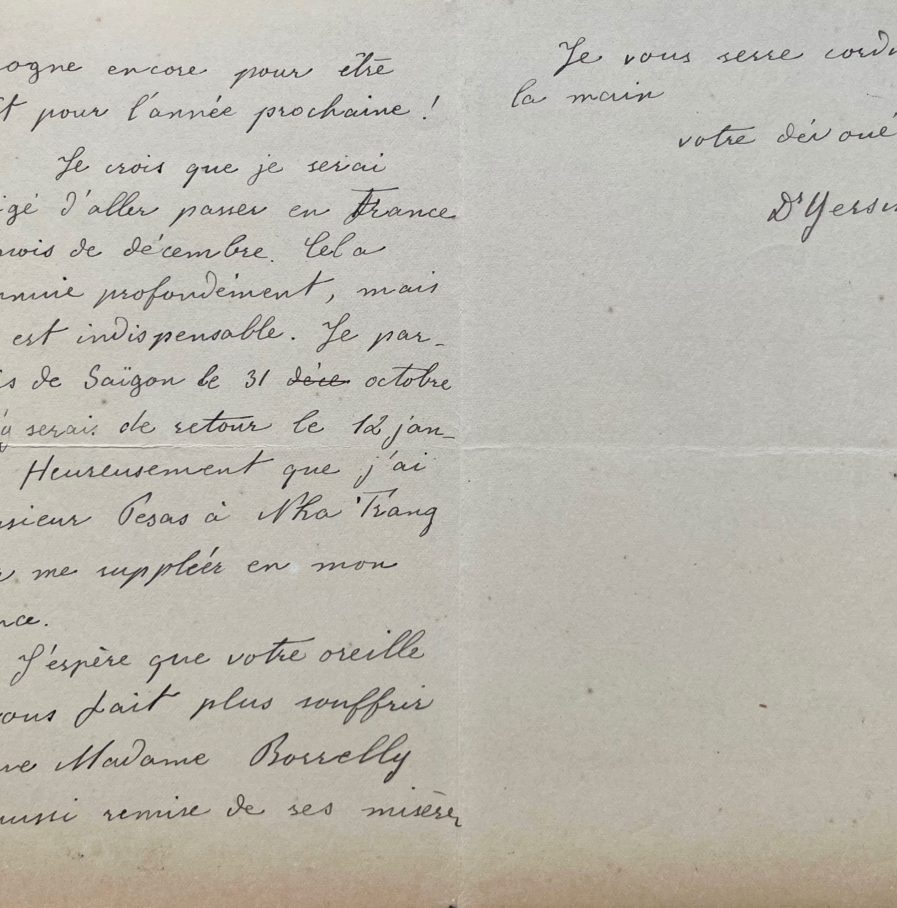 ogne encore pour être
t pour l'année prochaine !
Je crois que je serai
igé d'aller passer en France
mois de décembre. Cela
nnuie profondément, mais
est indispensable. Je par-
is de Saïgon le 31 déce octobre
serais de retour le 12 jan-
Heureusement que j'ai
nsieur Pesas à Nha Trang
r me suppléer en mon
nce.
J'espère que votre oreille
vous fait plus souffrir
ue Madame Borrelly
aussi remise de ses misères
Je vous serre cordi
la main
votre dévoué
Dr Yersin